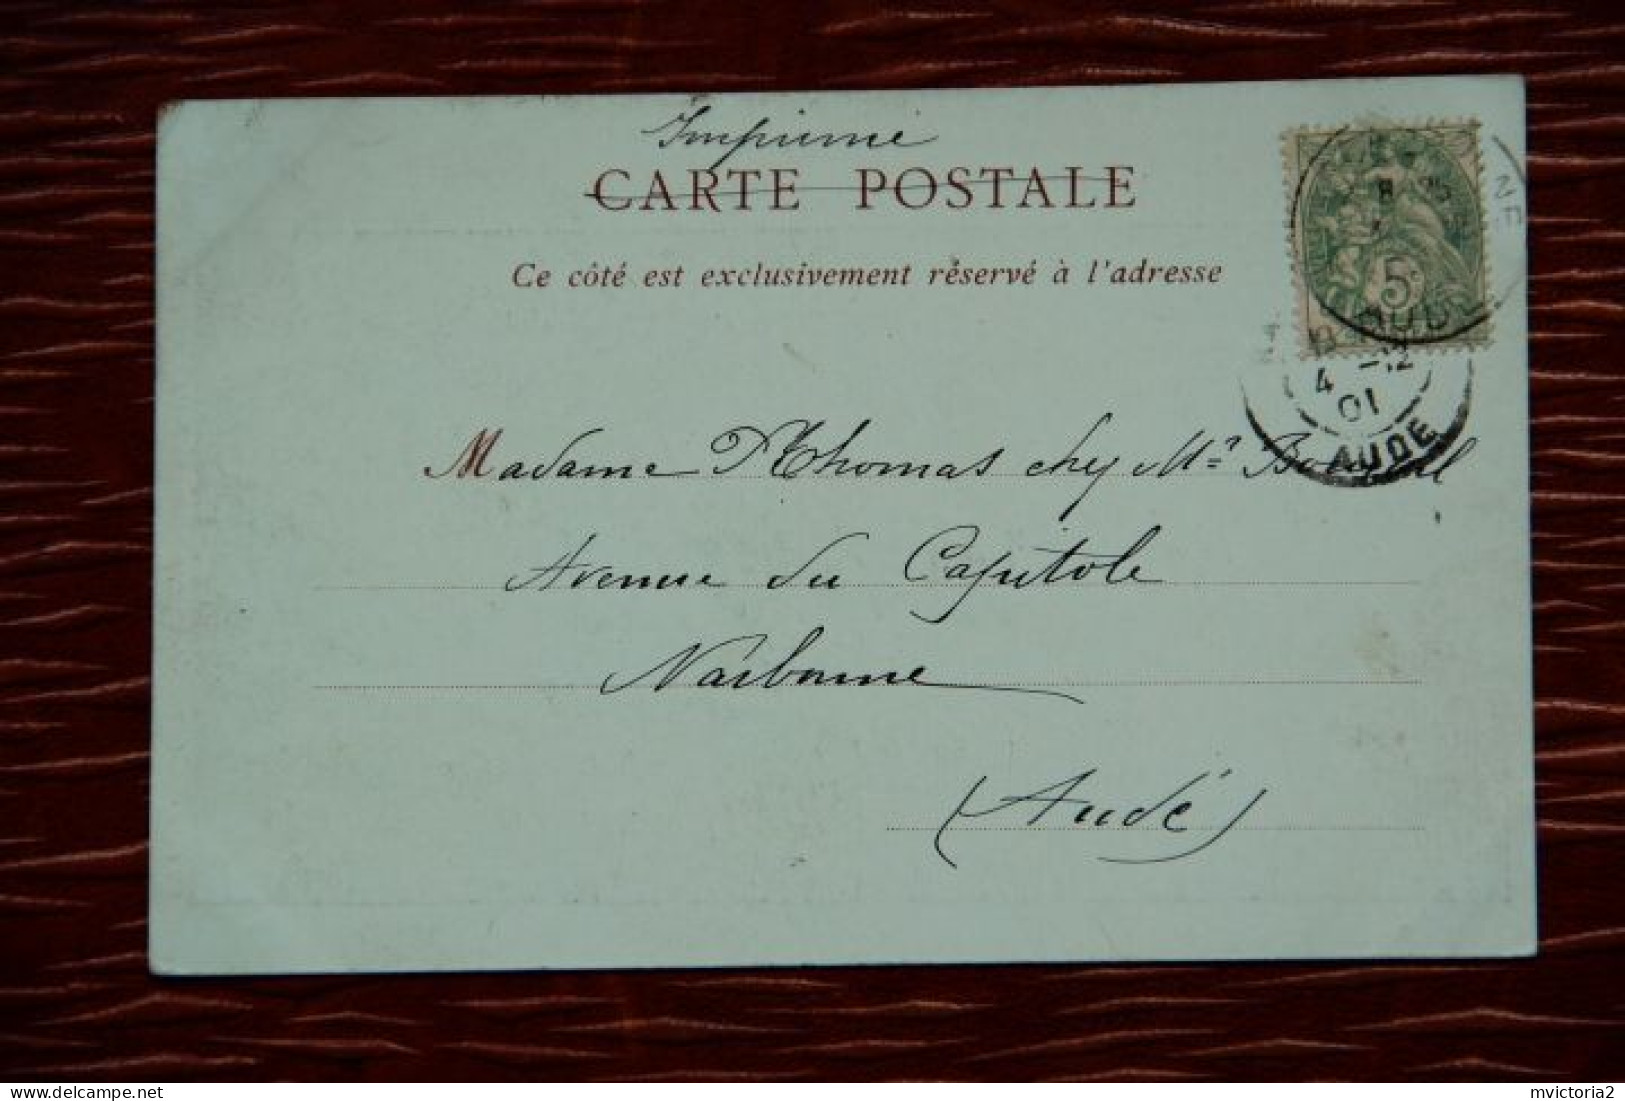 Imprimé
CARTE POSTALE
Ce côté est exclusivement réservé à l'adresse
5c
AUDE
4 -12
01
AUDE
Madame Thomas chez Mr
Avenue du Capitole
Narbonne
(Aude)
delcampe.net
mvictoria2